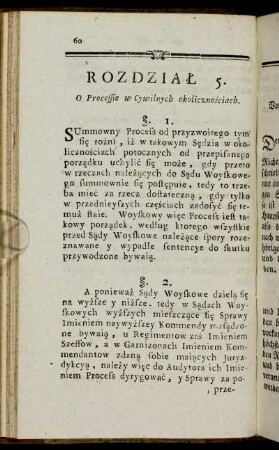 60
ROZDZIAŁ 5.
O Processie w Cywilnych okolicznościach.
§. 1.
SUmmowny Process od przyzwoitego tym
się rożni, iż w takowym Sędzia w oko-
licznościach potocznych od przepisanego
porządku uchylić się może, gdy przeto
w rzeczach należących do Sądu Woyskowe-
go summownie się postępuie, tedy to trze-
ba mieć za rzecz dostateczną, gdy tylko
w przednieyszych częściach zadosyć się te-
muż staie. Woyskowy więc Process iest ta-
kowy porządek, według ktorego wszystkie
przed Sądy Woyskowe należące spory roze-
znawane y wypadłe sentencye do skutku
przywodzone bywaią.
§. 2.
A ponieważ Sądy Woyskowe dzielą się
na wyższe y niższe, tedy w Sądach Woy-
skowych wyższych mieszczące się Sprawy
Imieniem naywyższey Kommendy rozsądzo-
ne bywaią, u Regimentow zaś Imieniem
Szeffow, a w Garnizonach Imieniem Kom-
mendantow zdaną sobie maiących Juryz-
dykcyą, należy więc do Audytora ich Imie-
niem Process dyrygować, y Sprawy za po-
prze-